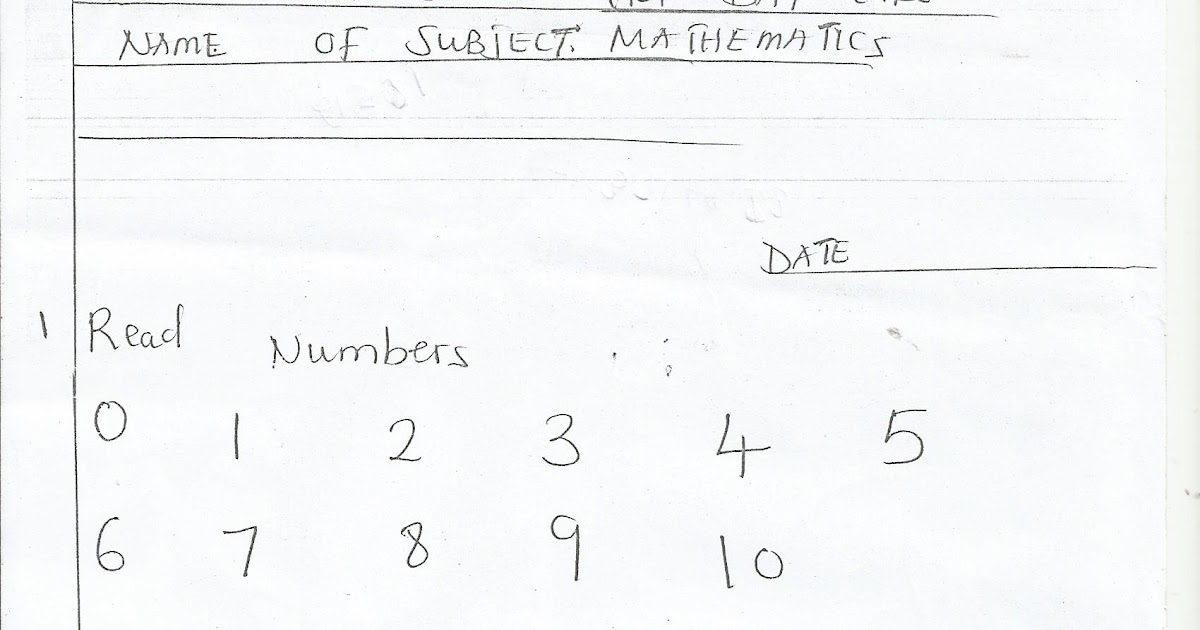 NAME OF SUBJECT: MATHEMATICS
DATE
1 Read Numbers
0 1 2 3 4 5
6 7 8 9 10